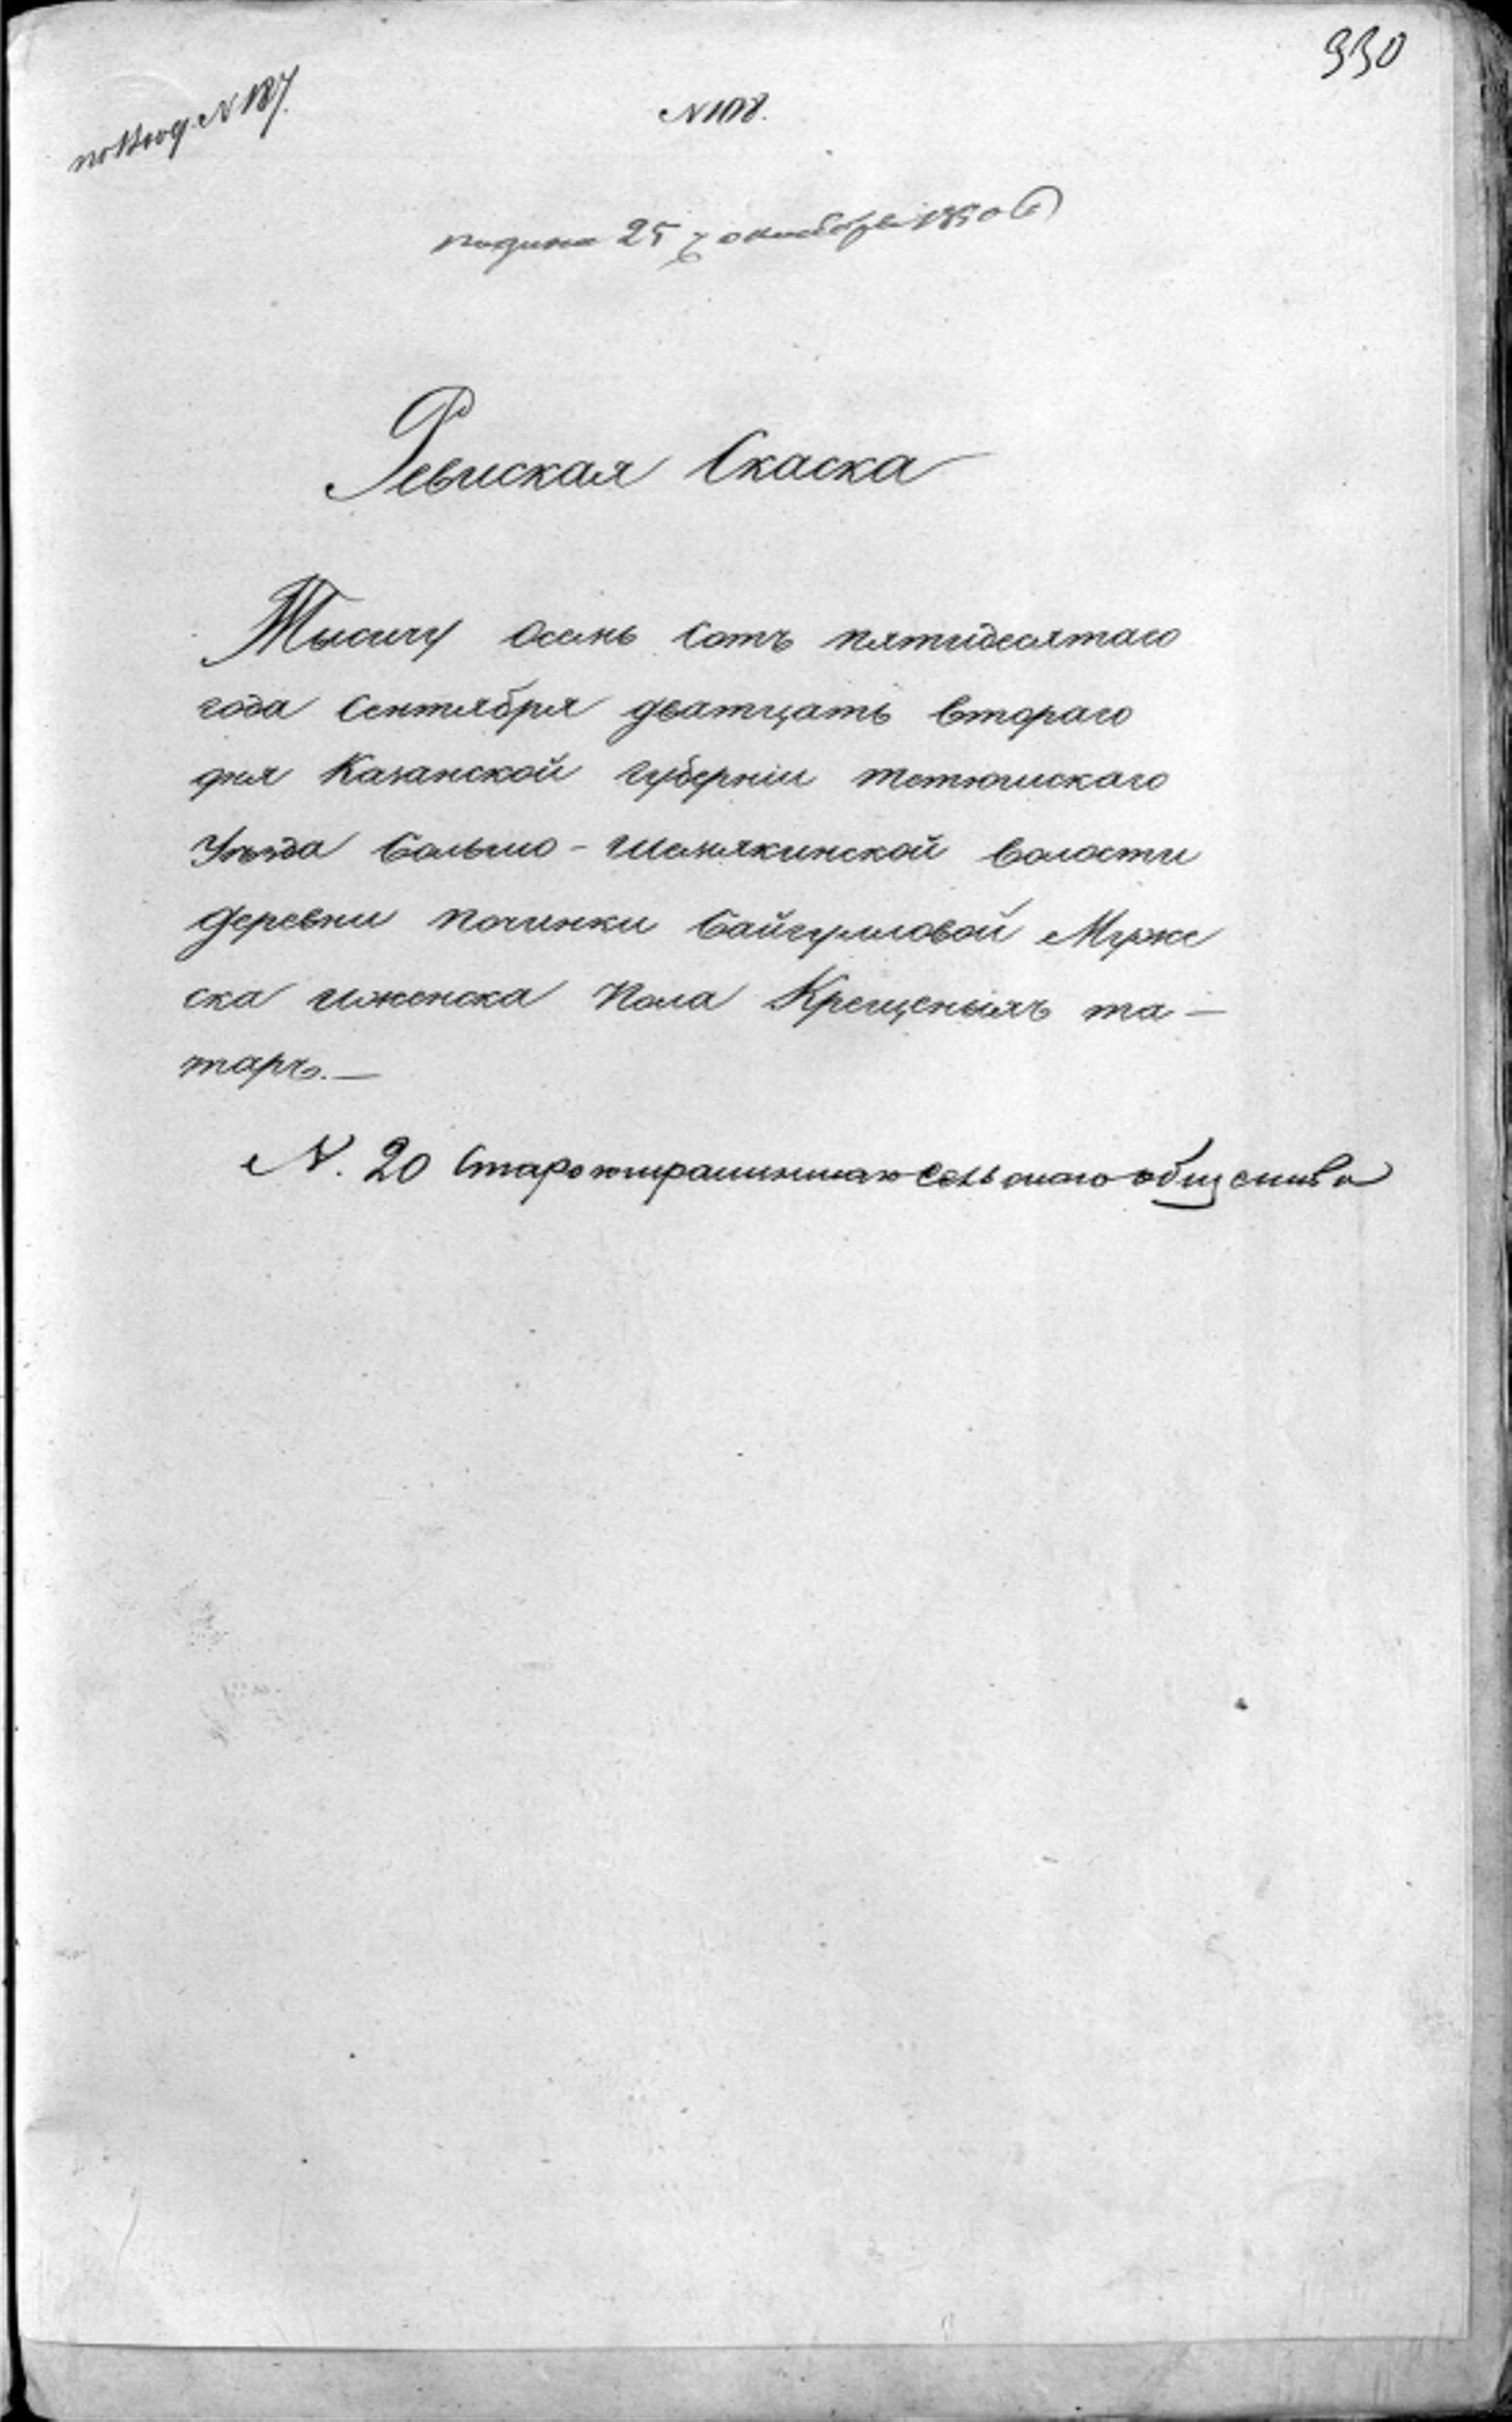 330
по Вход. N 187.
N 108.
подана 25 октября 1850 г
Ревиская Скаска
Тысичу осемь сотъ пятидесятаго
года Сентября дватцать втораго
дня Казанской Губерніи Тетюшскаго
Уѣзда Больше-Шемякинской волости
Деревни Починки Байгулловой Муже
ска иженска Пола Крещеныхъ та-
таръ.—
N. 20 сельскаго общества